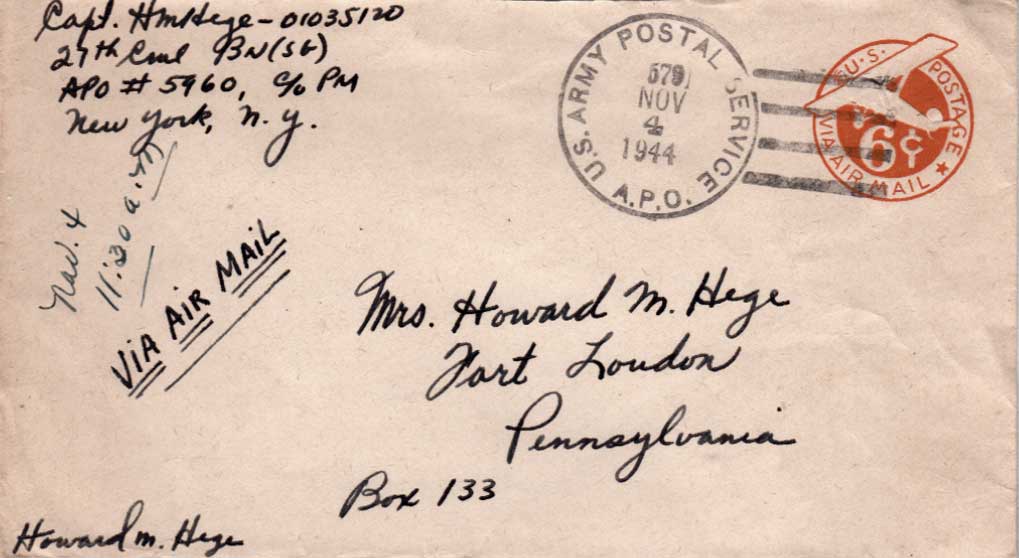 Capt. HMHege - 01035120
27th Cml BN (SG)
APO # 5960, c/o PM
New York, N.Y.
Nov. 4
11:30 a.m.
VIA AIR MAIL
U.S. ARMY POSTAL SERVICE
579
NOV
4
1944
A.P.O.
U.S. POSTAGE
6¢
VIA AIR MAIL
Mrs. Howard M. Hege
Fort Loudon
Pennsylvania
Box 133
Howard M. Hege